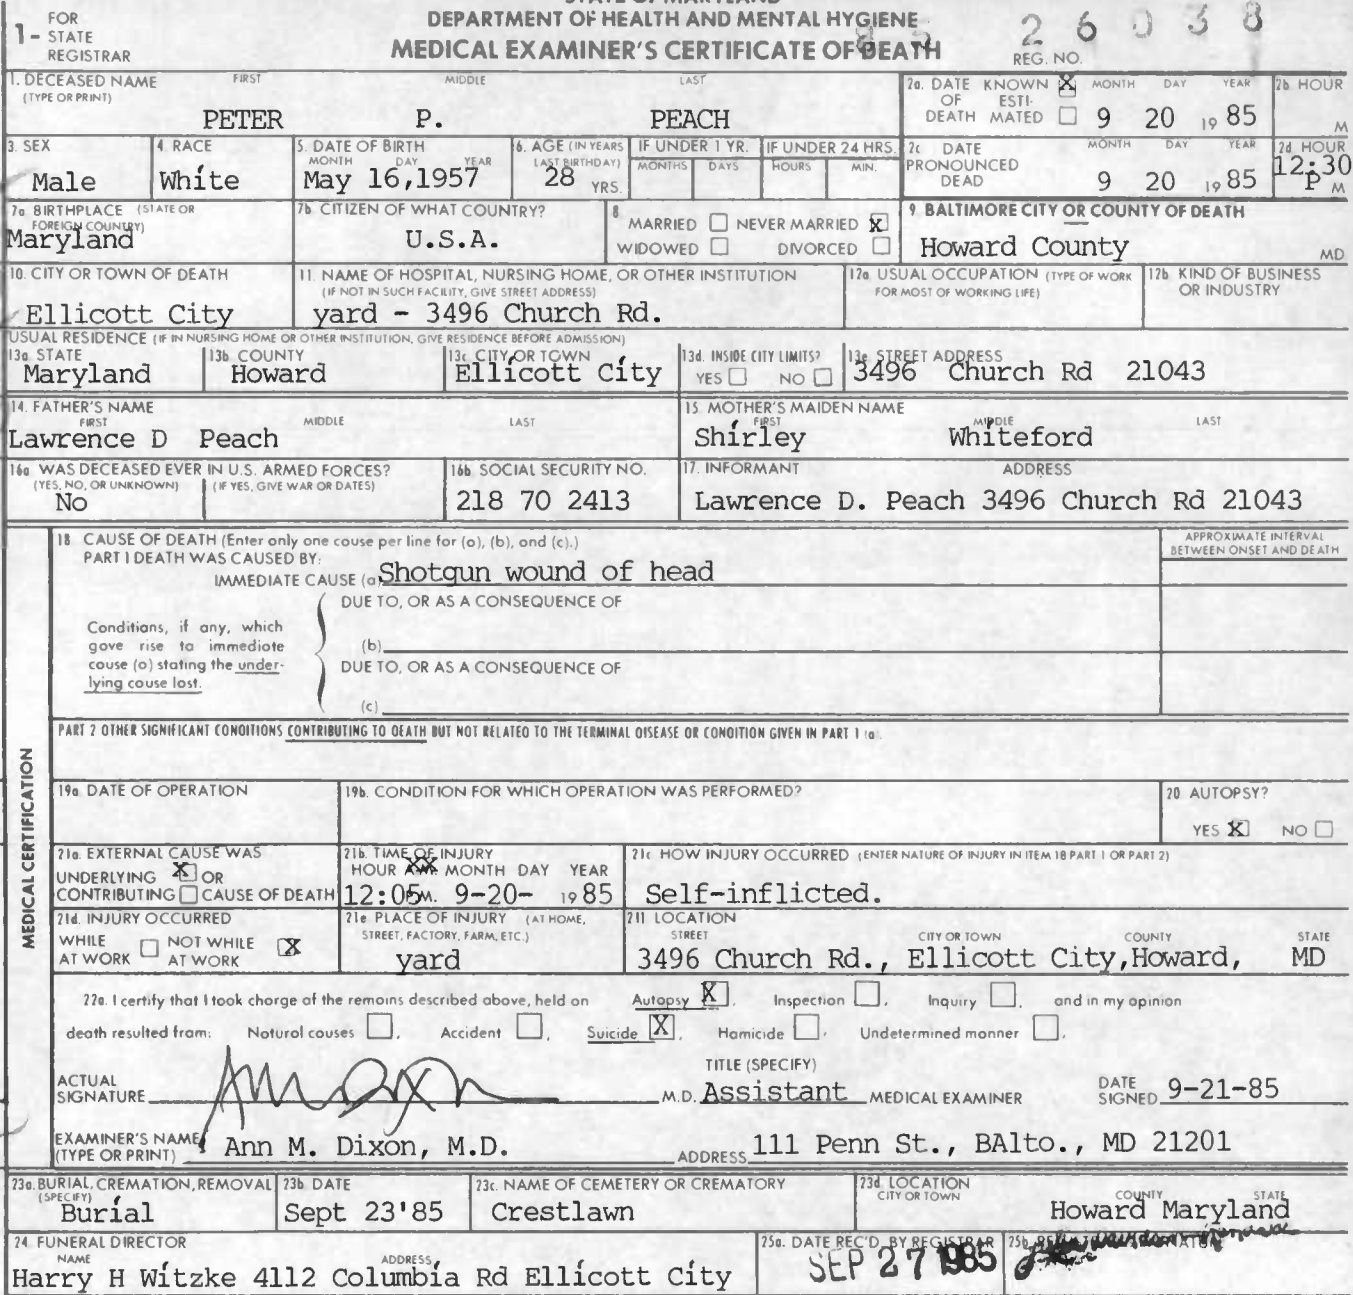 FOR
1- STATE
REGISTRAR
STATE OF MARYLAND
DEPARTMENT OF HEALTH AND MENTAL HYGIENE
MEDICAL EXAMINER'S CERTIFICATE OF DEATH
85 26038
REG. NO.
1. DECEASED NAME FIRST MIDDLE LAST
(TYPE OR PRINT)
PETER P. PEACH
2a. DATE KNOWN X MONTH DAY YEAR
OF ESTI-
DEATH MATED 9 20 19 85
2b. HOUR
M
3. SEX
Male
4. RACE
White
5. DATE OF BIRTH
MONTH DAY YEAR
May 16,1957
6. AGE (IN YEARS
LAST BIRTHDAY)
28 YRS.
IF UNDER 1 YR.
MONTHS DAYS
IF UNDER 24 HRS.
HOURS MIN.
2c DATE MONTH DAY YEAR
PRONOUNCED
DEAD 9 20 19 85
2d HOUR
12:30
P M
7a BIRTHPLACE (STATE OR
FOREIGN COUNTRY)
Maryland
7b CITIZEN OF WHAT COUNTRY?
U.S.A.
8
MARRIED NEVER MARRIED X
WIDOWED DIVORCED
9. BALTIMORE CITY OR COUNTY OF DEATH
Howard County MD
10. CITY OR TOWN OF DEATH
Ellicott City
11. NAME OF HOSPITAL, NURSING HOME, OR OTHER INSTITUTION
(IF NOT IN SUCH FACILITY, GIVE STREET ADDRESS)
yard - 3496 Church Rd.
12a. USUAL OCCUPATION (TYPE OF WORK
FOR MOST OF WORKING LIFE)
12b. KIND OF BUSINESS
OR INDUSTRY
USUAL RESIDENCE (IF IN NURSING HOME OR OTHER INSTITUTION, GIVE RESIDENCE BEFORE ADMISSION)
13a STATE
Maryland
13b COUNTY
Howard
13c. CITY OR TOWN
Ellicott City
13d. INSIDE CITY LIMITS?
YES NO
13e. STREET ADDRESS
3496 Church Rd 21043
14. FATHER'S NAME
FIRST MIDDLE LAST
Lawrence D Peach
15. MOTHER'S MAIDEN NAME
FIRST MIDDLE LAST
Shirley Whiteford
16a WAS DECEASED EVER IN U.S. ARMED FORCES?
(YES, NO, OR UNKNOWN) (IF YES, GIVE WAR OR DATES)
No
16b. SOCIAL SECURITY NO.
218 70 2413
17. INFORMANT ADDRESS
Lawrence D. Peach 3496 Church Rd 21043
MEDICAL CERTIFICATION
18 CAUSE OF DEATH (Enter only one couse per line for (a), (b), and (c).)
PART I DEATH WAS CAUSED BY:
IMMEDIATE CAUSE (a) Shotgun wound of head
APPROXIMATE INTERVAL
BETWEEN ONSET AND DEATH
DUE TO, OR AS A CONSEQUENCE OF
Conditions, if any, which
gave rise to immediate
cause (a) stating the under-
lying couse lost.
(b)
DUE TO, OR AS A CONSEQUENCE OF
(c)
PART 2 OTHER SIGNIFICANT CONDITIONS CONTRIBUTING TO DEATH BUT NOT RELATED TO THE TERMINAL DISEASE OR CONDITION GIVEN IN PART 1 (a).
19a DATE OF OPERATION
19b. CONDITION FOR WHICH OPERATION WAS PERFORMED?
20 AUTOPSY?
YES X NO
21a. EXTERNAL CAUSE WAS
UNDERLYING X OR
CONTRIBUTING CAUSE OF DEATH
21b. TIME OF INJURY
HOUR MONTH DAY YEAR
12:05 P.M. 9-20- 19 85
21c HOW INJURY OCCURRED (ENTER NATURE OF INJURY IN ITEM 18 PART 1 OR PART 2)
Self-inflicted.
21d. INJURY OCCURRED
WHILE NOT WHILE X
AT WORK AT WORK
21e PLACE OF INJURY (AT HOME,
STREET, FACTORY, FARM, ETC.)
yard
21f LOCATION
STREET CITY OR TOWN COUNTY STATE
3496 Church Rd., Ellicott City,Howard, MD
22a. I certify that I took charge of the remains described above, held on Autopsy X, Inspection, Inquiry, and in my opinion
death resulted from: Natural couses, Accident, Suicide X, Homicide, Undetermined manner.
ACTUAL
SIGNATURE
M.D.
TITLE (SPECIFY)
Assistant MEDICAL EXAMINER
DATE
SIGNED 9-21-85
EXAMINER'S NAME
(TYPE OR PRINT) Ann M. Dixon, M.D.
ADDRESS 111 Penn St., BAlto., MD 21201
23a. BURIAL, CREMATION, REMOVAL
(SPECIFY)
Burial
23b DATE
Sept 23'85
23c. NAME OF CEMETERY OR CREMATORY
Crestlawn
23d LOCATION
CITY OR TOWN COUNTY STATE
Howard Maryland
24. FUNERAL DIRECTOR
NAME ADDRESS
Harry H Witzke 4112 Columbia Rd Ellicott City
25a. DATE REC'D. BY REGISTRAR
SEP 27 1985
25b.